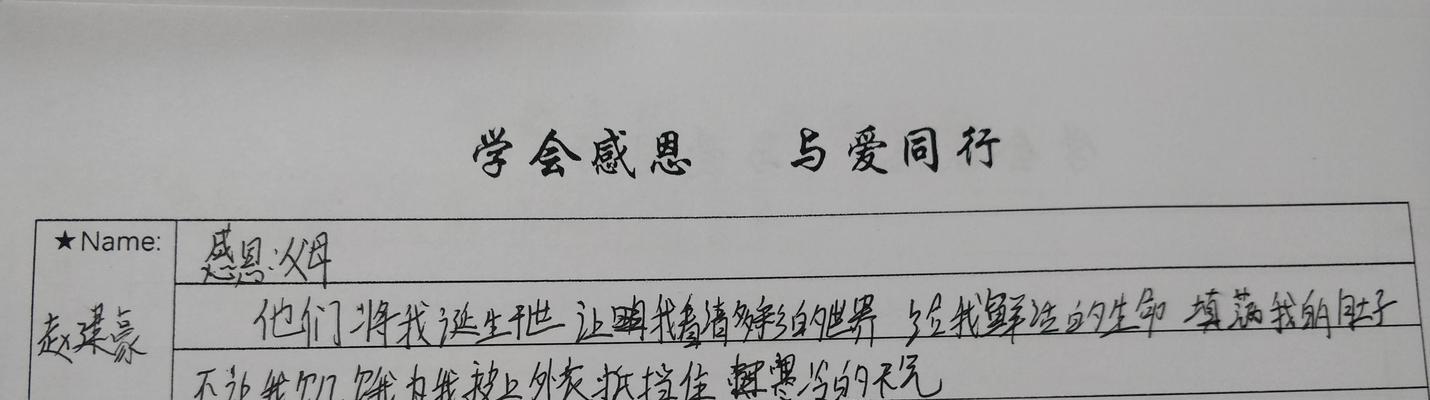 学会感恩 与爱同行
★Name:
赵建豪
感恩:父母
他们将我诞生于世 让我看清多彩的世界 给我鲜活的生命 填满我的肚子
不让我饥饿为我披上外衣抵挡住寒冷的天气